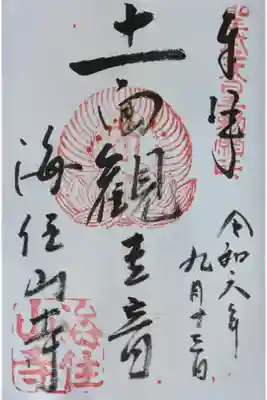 奉拝
令和六年
九月十三日
十一面観世音
海住山寺
海住
山寺